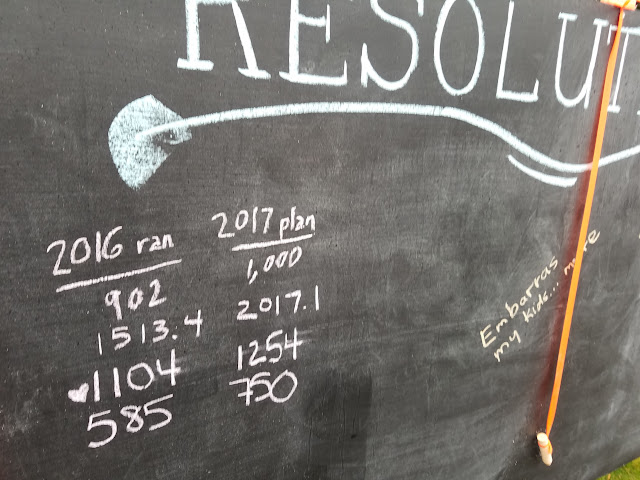 RESOLUT
2016 ran
902
1513.4
1104
585
2017 plan
1,000
2017.1
1254
750
Embarras
my kids... more